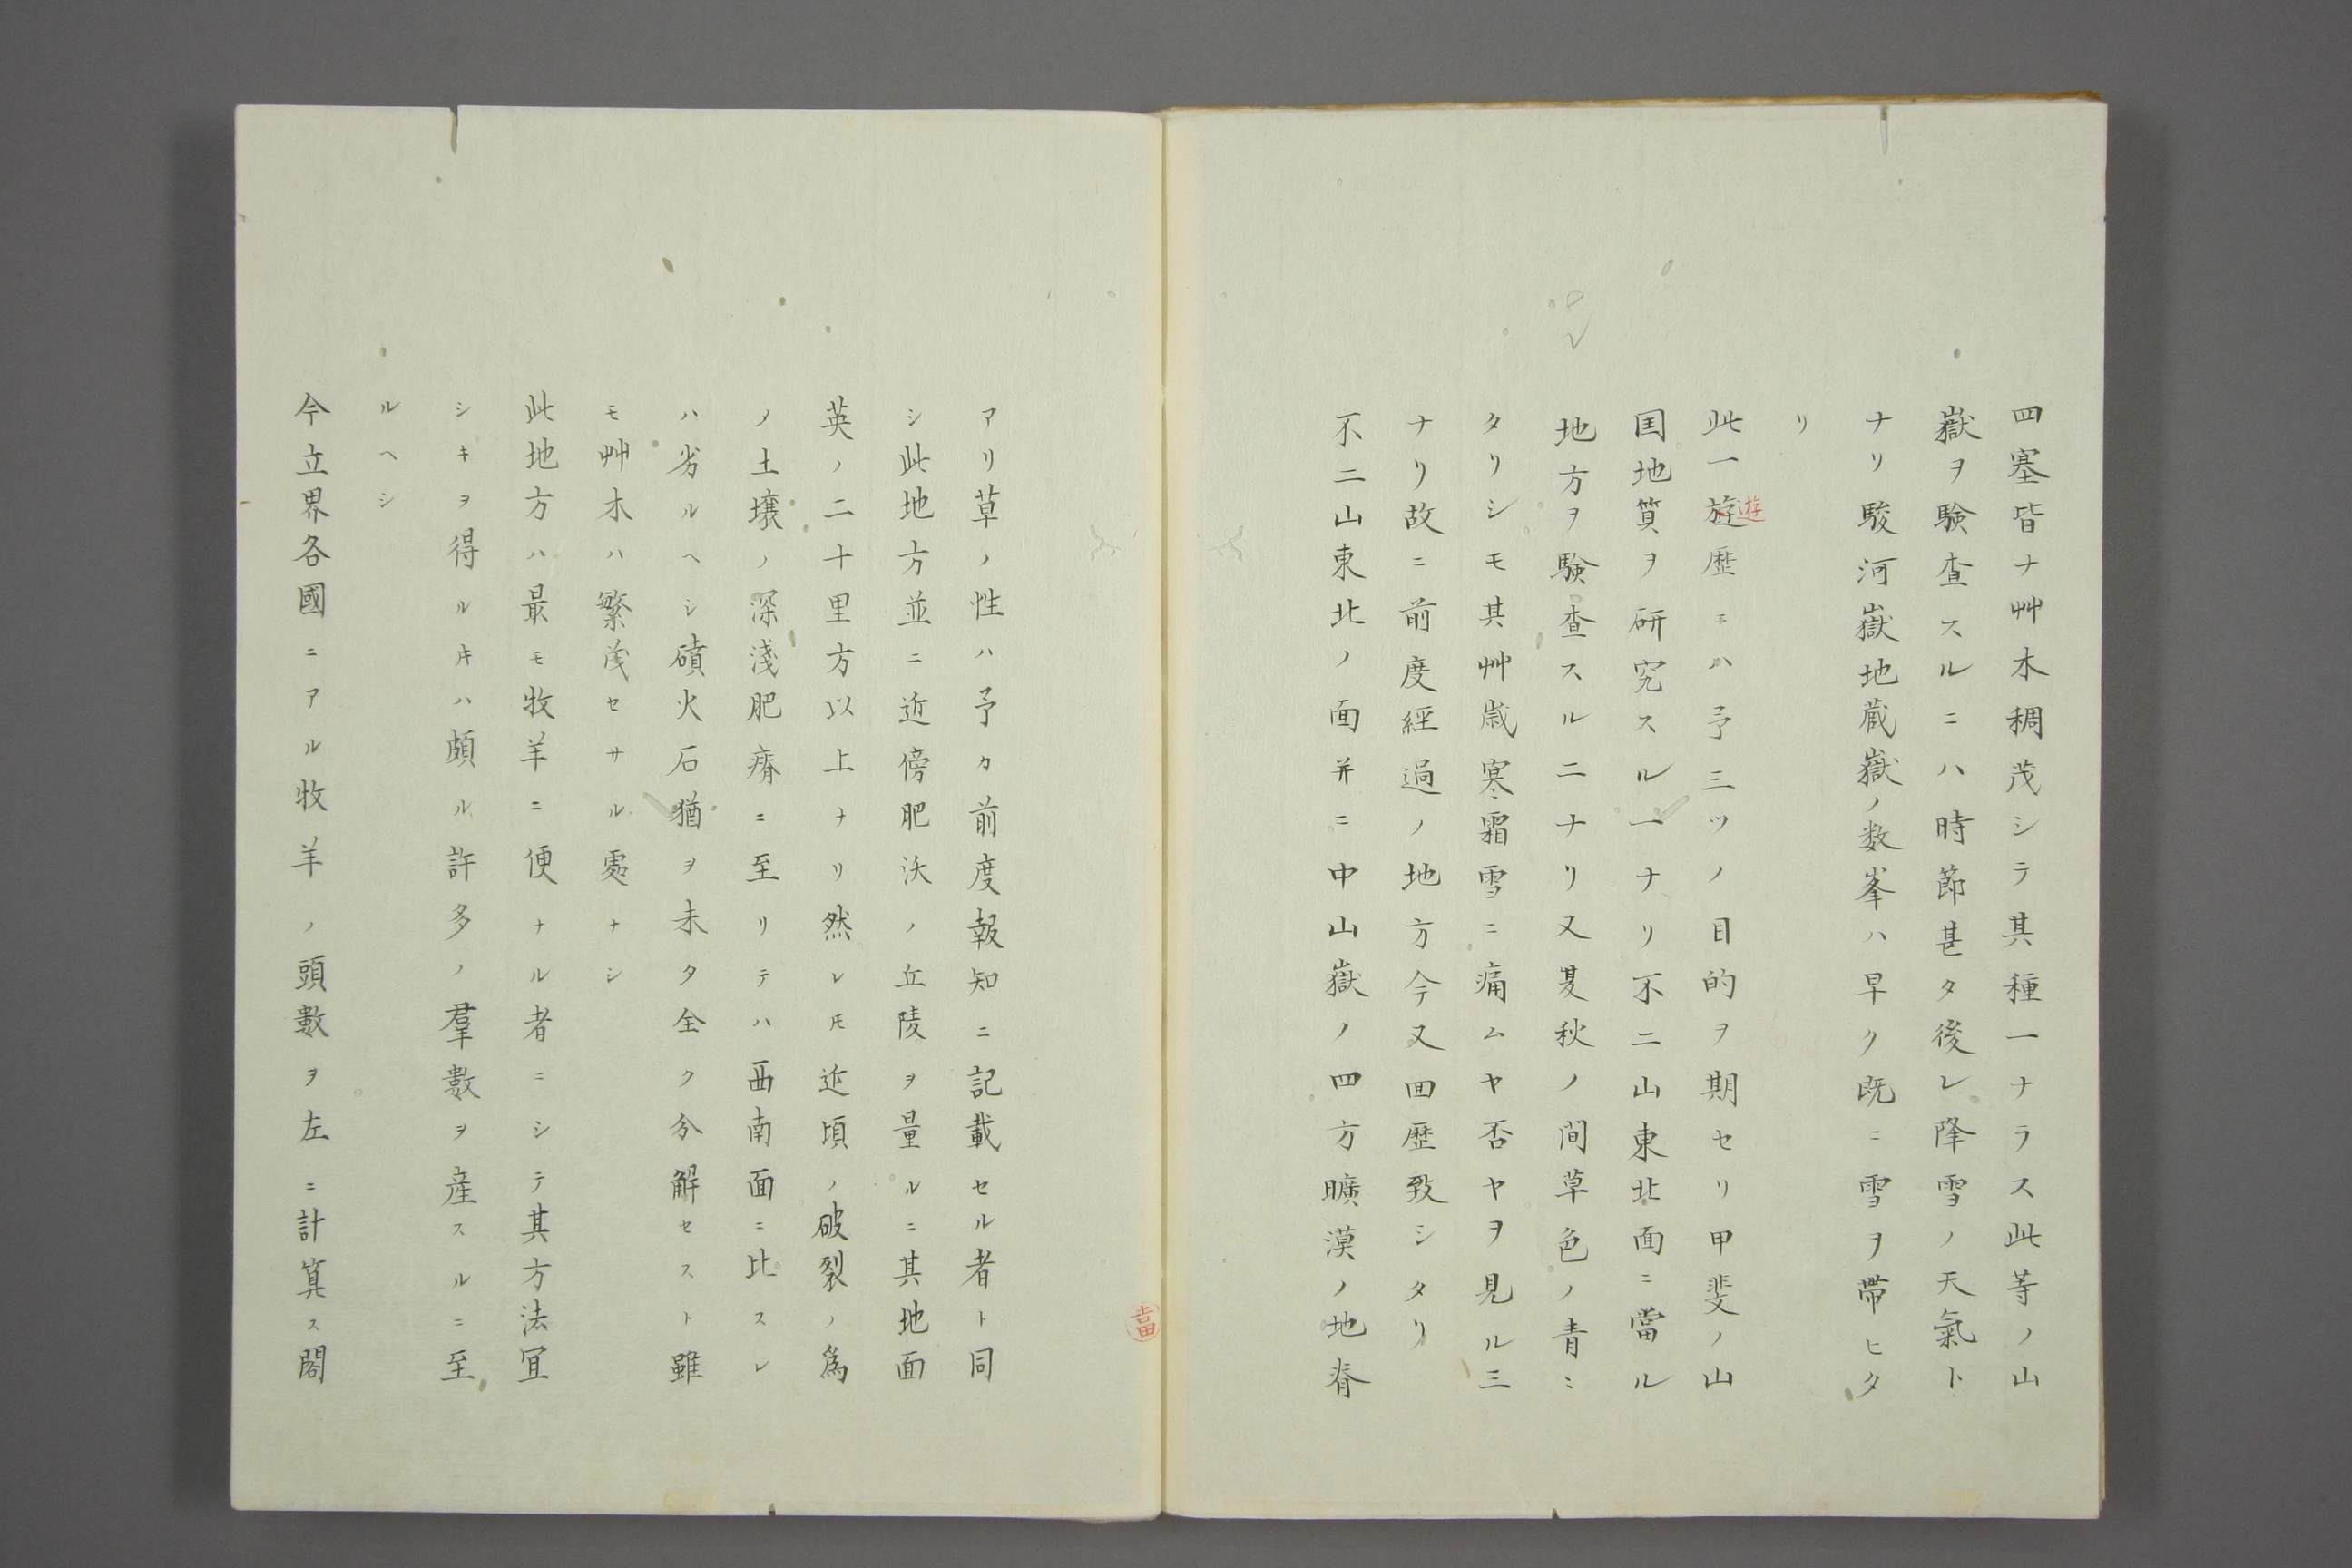 四塞皆ナ艸木稠茂シテ其種一ナラス此等ノ山
嶽ヲ験査スルニハ時節甚タ後レ降雪ノ天氣ト
ナリ駿河嶽地蔵嶽ノ数峯ハ早ク既ニ雪ヲ帶ヒタ
リ
此一遊歴ニハ予三ツノ目的ヲ期セリ甲斐ノ山
遊
国地質ヲ研究スル一ナリ不二山東北面ニ當ル
地方ヲ験査スル二ナリ又夏秋ノ間草色ノ青ミ
タリシモ其艸歳寒霜雪ニ痛ムヤ否ヤヲ見ル三
ナリ故ニ前度經過ノ地方今又回歴致シタリ
不二山東北ノ面并ニ中山嶽ノ四方曠漠ノ地脊
アリ草ノ性ハ予カ前度報知ニ記載セル者ト同
シ此地方並ニ近傍肥沃ノ丘陵ヲ量ルニ其地面
英ノ二十里方以上ナリ然レ𪜈近頃ノ破裂ノ為
ノ土壌ノ深淺肥瘠ニ至リテハ西南面ニ比スレ
ハ劣ルヘシ磧火石猶ヲ未タ全ク分解セスト雖
モ艸木ハ繁茂セサル處ナシ
此地方ハ最モ牧羊ニ便ナル者ニシテ其方法宜
シキヲ得ルキハ頗ル許多ノ羣數ヲ産スルニ至
ルヘシ
今立界各國ニアル牧羊ノ頭數ヲ左ニ計算ス閣